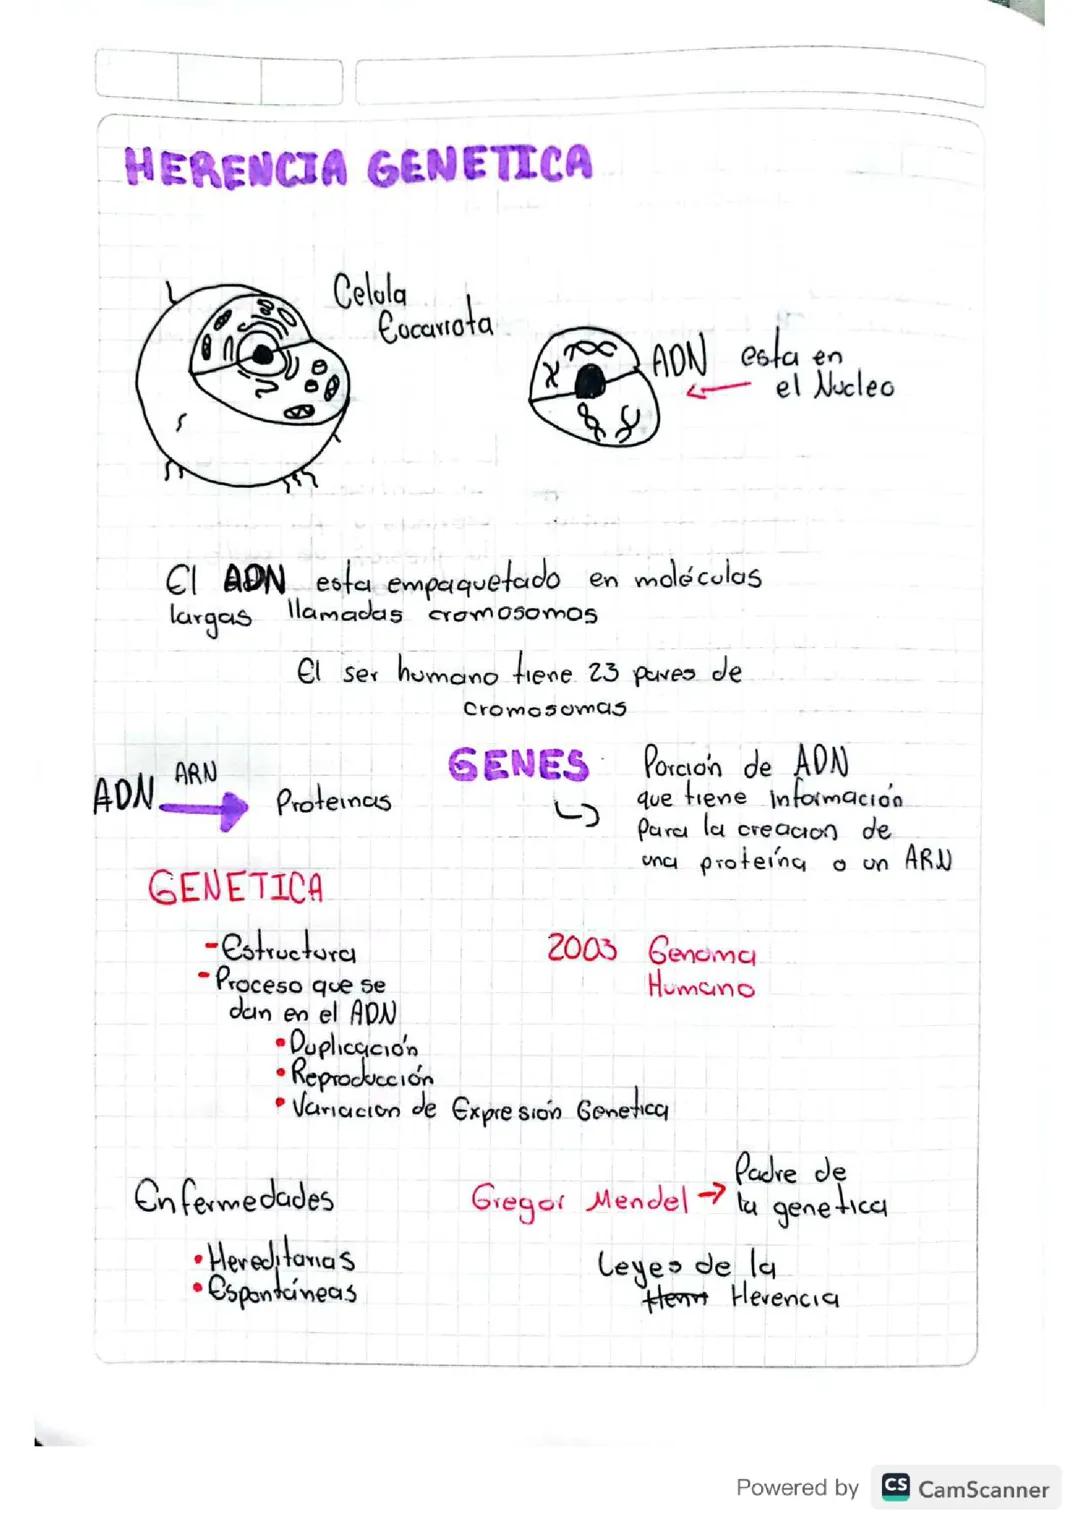 HERENCIA GENETICA
Celula
Eocariota
ADN esta en
el Nucleo
El ADN esta empaquetado en moléculas
largas llamadas cromosomos
El ser humano tiene 23 pares de
cromosomas
ADN ARN Proteinas
GENES Porción de ADN
que tiene información
para la creacion de
una proteína o un ARN
GENETICA
-Estructura
-Proceso que se
dan en el ADN
•Duplicación
•Reproducción
•Variacion de Expresión Genetica
2003 Genoma
Humano
Enfermedades
•Hereditarias
•Espontáneas
Gregor Mendel → Padre de
la genetica
Leyes de la
Herencia
Powered by CS CamScanner